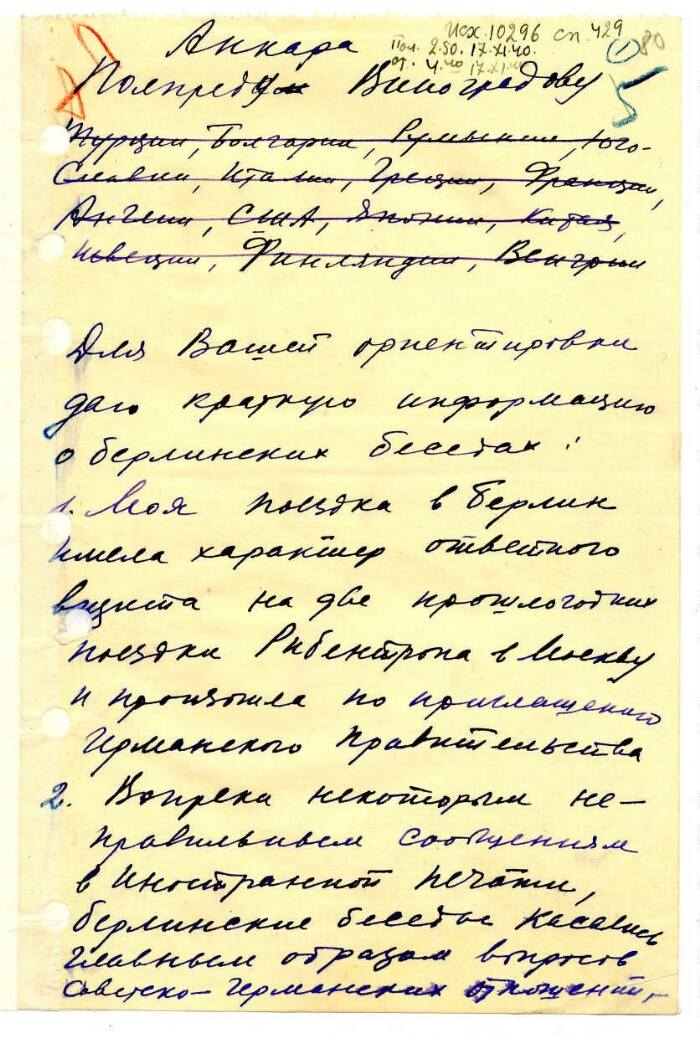 Исх. 10296 сп. 429
80
Пол. 2.50. 17.XI.40.
от. 4.40 17.XI.40
1
Анкара
Полпреду Виноградову
Турции, Болгарии, Румынии, Юго-
Славии, Италии, Греции, Франции,
Англии, США, Японии, Китая,
Швеции, Финляндии, Венгрии
Для Вашей ориентировки
даю краткую информацию
о берлинских беседах:
1. Моя поездка в Берлин
имела характер ответного
визита на две прошлогодних
поездки Рибентропа в Москву
и произошла по приглашению
Германского Правительства
2. Вопреки некоторым не-
правильным сообщениям
в иностранной печати,
берлинские беседы касались
главным образом вопросов
Советско-Германских отношений,